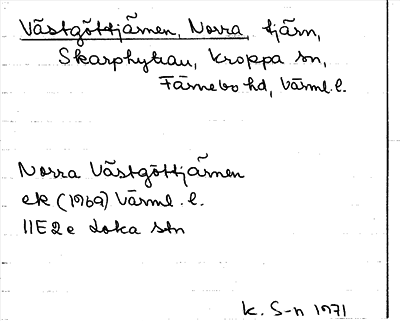 Västgöttjärnen, Norra, tjärn,
Skarphyttan, Kroppa sn,
Färnebo hd, Värml. l.
Norra Västgöttjärnen
ek (1969) Värml. l.
11E2e Loka stn
K. S-n 1971